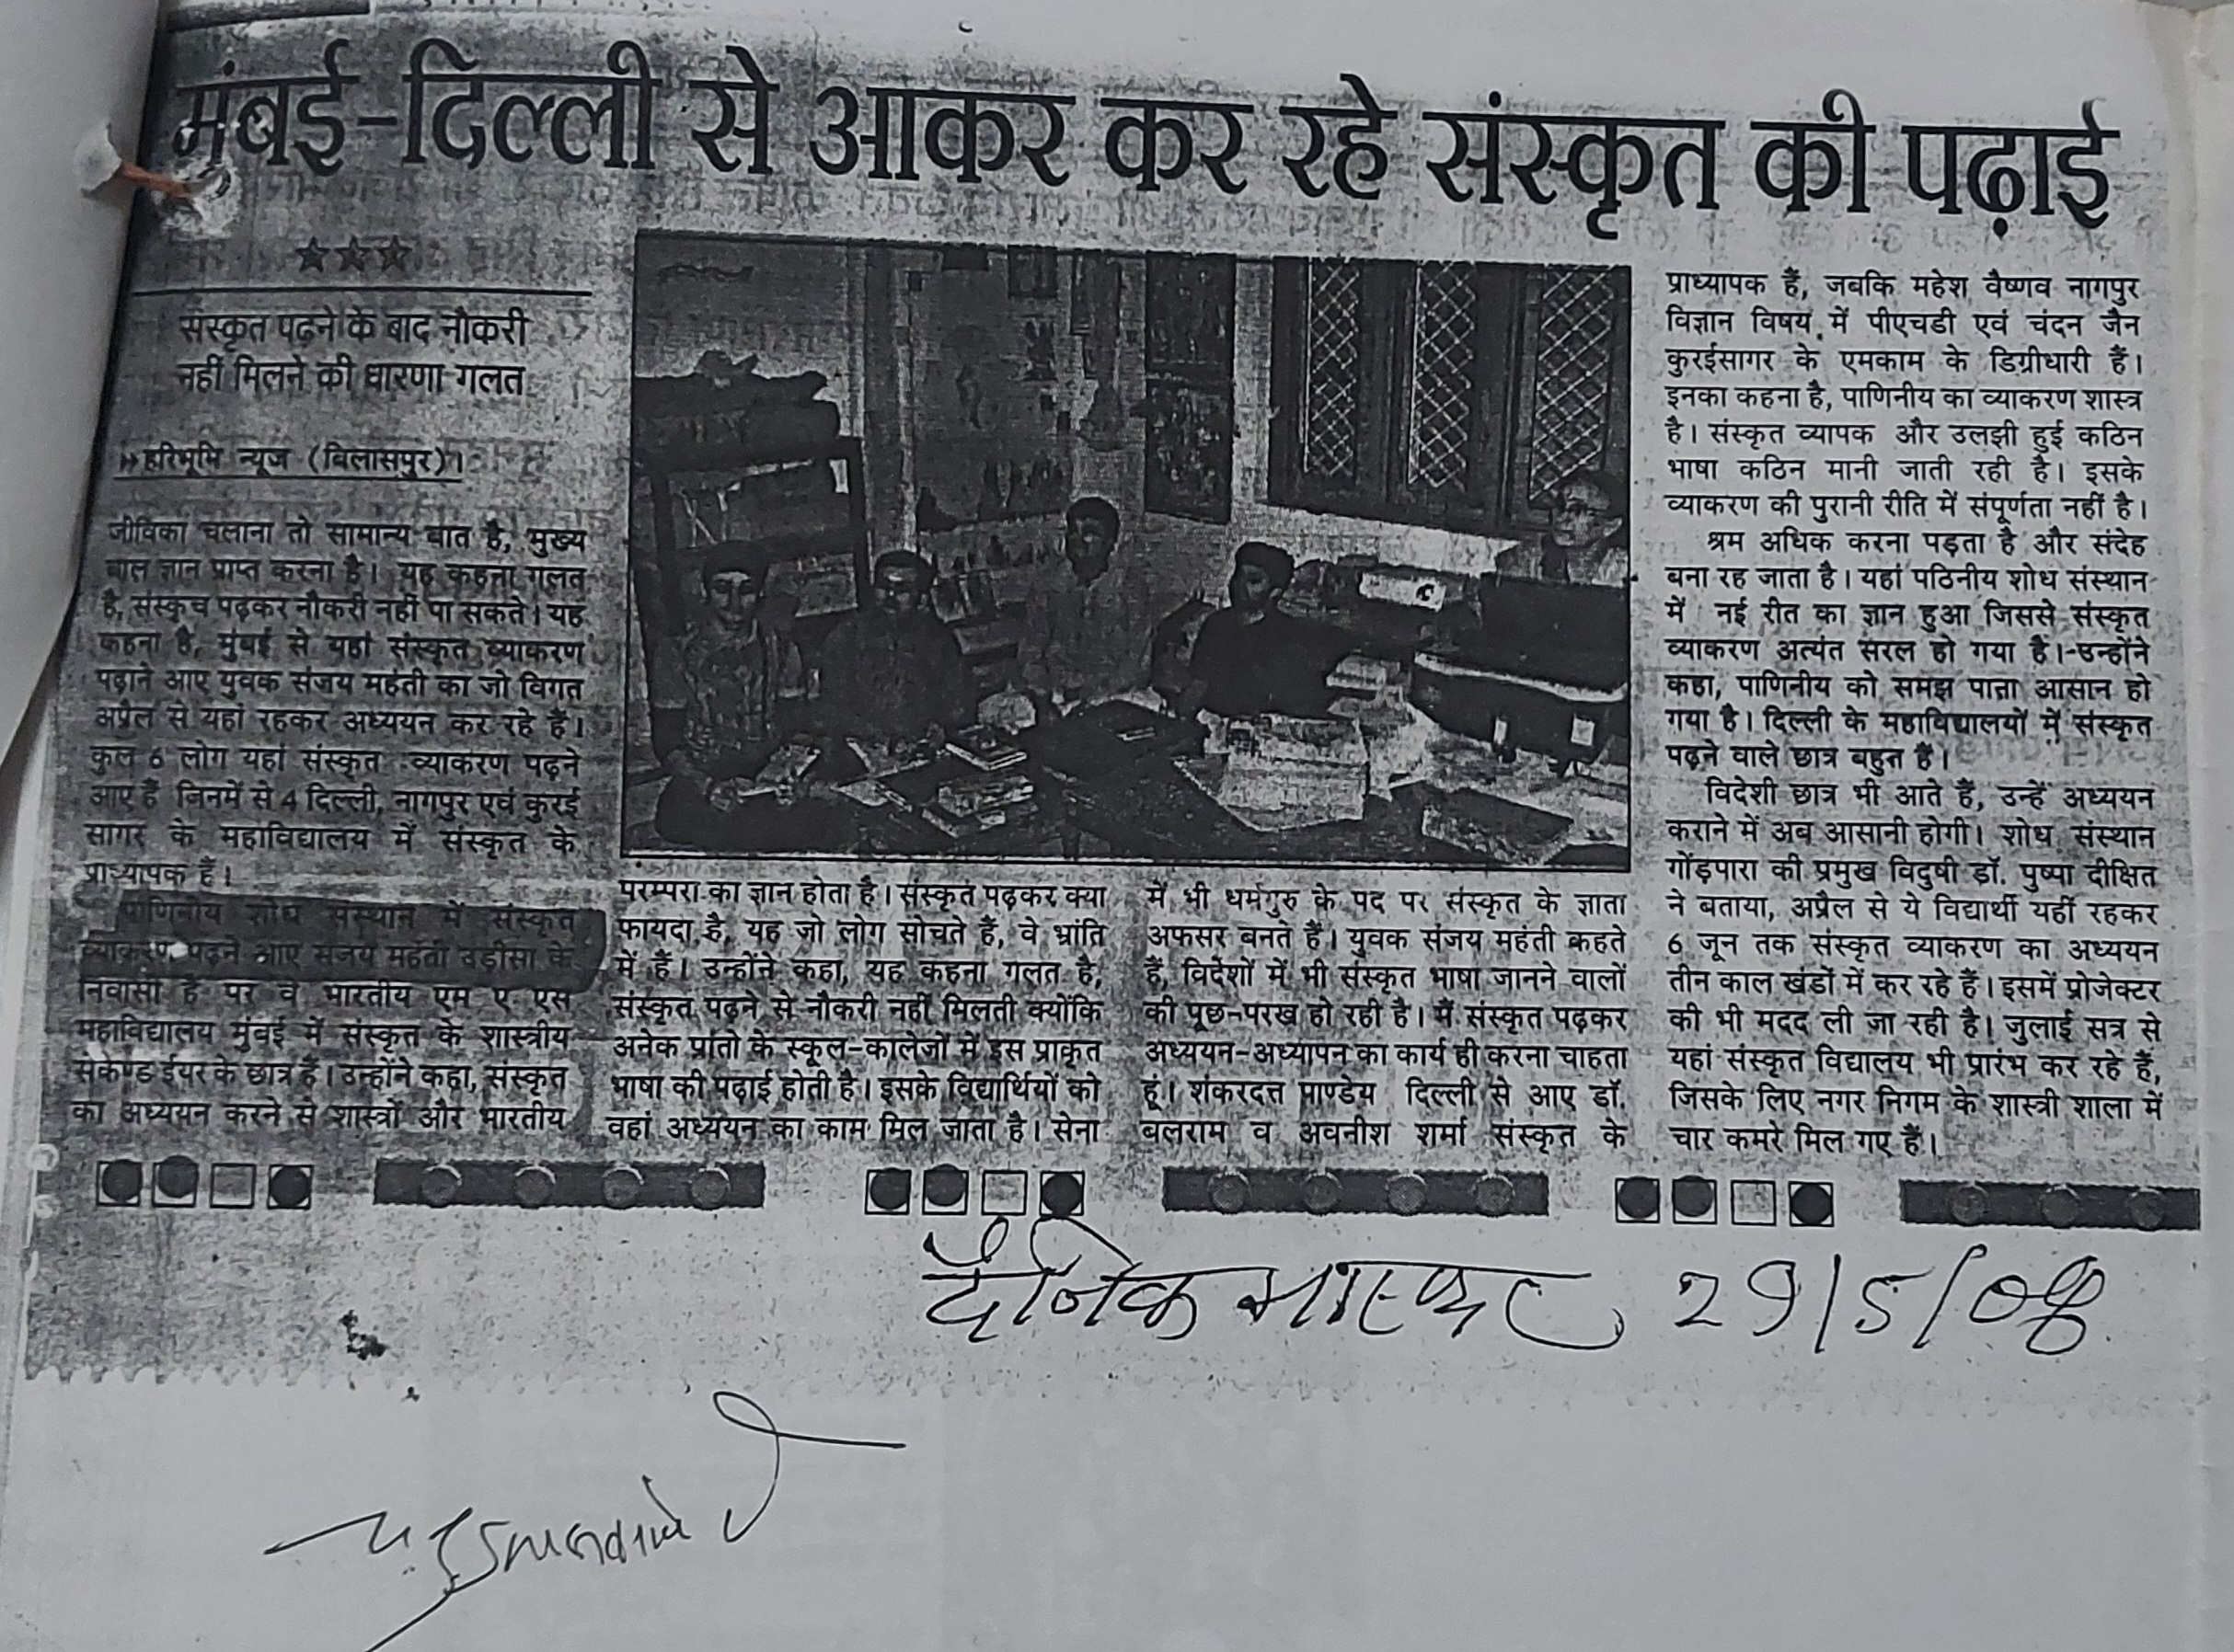 मुंबई-दिल्ली से आकर कर रहे संस्कृत की पढ़ाई
संस्कृत पढ़ने के बाद नौकरी
नहीं मिलने की धारणा गलत
हरिभूमि न्यूज (बिलासपुर)।
जीविका चलाना तो सामान्य बात है, मुख्य
बात ज्ञान प्राप्त करना है। यह कहना गलत
है, संस्कृत पढ़कर नौकरी नहीं पा सकते। यह
कहना है, मुंबई से यहां संस्कृत व्याकरण
पढ़ाने आए युवक संजय महंती का जो विगत
अप्रैल से यहां रहकर अध्ययन कर रहे हैं।
कुल 6 लोग यहां संस्कृत व्याकरण पढ़ने
आए हैं जिनमें से 4 दिल्ली, नागपुर एवं कुरई
सागर के महाविद्यालय में संस्कृत के
प्राध्यापक हैं।
पाणिनीय शोध संस्थान में संस्कृत
व्याकरण पढ़ने आए संजय महंती उड़ीसा के
निवासी हैं पर वे भारतीय एम ए एस
महाविद्यालय मुंबई में संस्कृत के शास्त्रीय
सेकेण्ड ईयर के छात्र हैं। उन्होंने कहा, संस्कृत
का अध्ययन करने से शास्त्रों और भारतीय
परम्परा का ज्ञान होता है। संस्कृत पढ़कर क्या
फायदा है, यह जो लोग सोचते हैं, वे भ्रांति
में हैं। उन्होंने कहा, यह कहना गलत है,
संस्कृत पढ़ने से नौकरी नहीं मिलती क्योंकि
अनेक प्रांतो के स्कूल-कालेजों में इस प्राकृत
भाषा की पढ़ाई होती है। इसके विद्यार्थियों को
वहां अध्ययन का काम मिल जाता है। सेना
में भी धर्मगुरु के पद पर संस्कृत के ज्ञाता
अफसर बनते हैं। युवक संजय महंती कहते
हैं, विदेशों में भी संस्कृत भाषा जानने वालों
की पूछ-परख हो रही है। मैं संस्कृत पढ़कर
अध्ययन-अध्यापन का कार्य ही करना चाहता
हूं। शंकरदत्त पाण्डेय दिल्ली से आए डॉ.
बलराम व अवनीश शर्मा संस्कृत के
प्राध्यापक हैं, जबकि महेश वैष्णव नागपुर
विज्ञान विषय में पीएचडी एवं चंदन जैन
कुरईसागर के एमकाम के डिग्रीधारी हैं।
इनका कहना है, पाणिनीय का व्याकरण शास्त्र
है। संस्कृत व्यापक और उलझी हुई कठिन
भाषा कठिन मानी जाती रही है। इसके
व्याकरण की पुरानी रीति में संपूर्णता नहीं है।
श्रम अधिक करना पड़ता है और संदेह
बना रह जाता है। यहां पठिनीय शोध संस्थान
में नई रीत का ज्ञान हुआ जिससे संस्कृत
व्याकरण अत्यंत सरल हो गया है। उन्होंने
कहा, पाणिनीय को समझ पाना आसान हो
गया है। दिल्ली के महाविद्यालयों में संस्कृत
पढ़ने वाले छात्र बहुत हैं।
विदेशी छात्र भी आते हैं, उन्हें अध्ययन
कराने में अब आसानी होगी। शोध संस्थान
गोंड़पारा की प्रमुख विदुषी डॉ. पुष्पा दीक्षित
ने बताया, अप्रैल से ये विद्यार्थी यहीं रहकर
6 जून तक संस्कृत व्याकरण का अध्ययन
तीन काल खंडों में कर रहे हैं। इसमें प्रोजेक्टर
की भी मदद ली जा रही है। जुलाई सत्र से
यहां संस्कृत विद्यालय भी प्रारंभ कर रहे हैं,
जिसके लिए नगर निगम के शास्त्री शाला में
चार कमरे मिल गए हैं।
दैनिक भास्कर 29/5/08